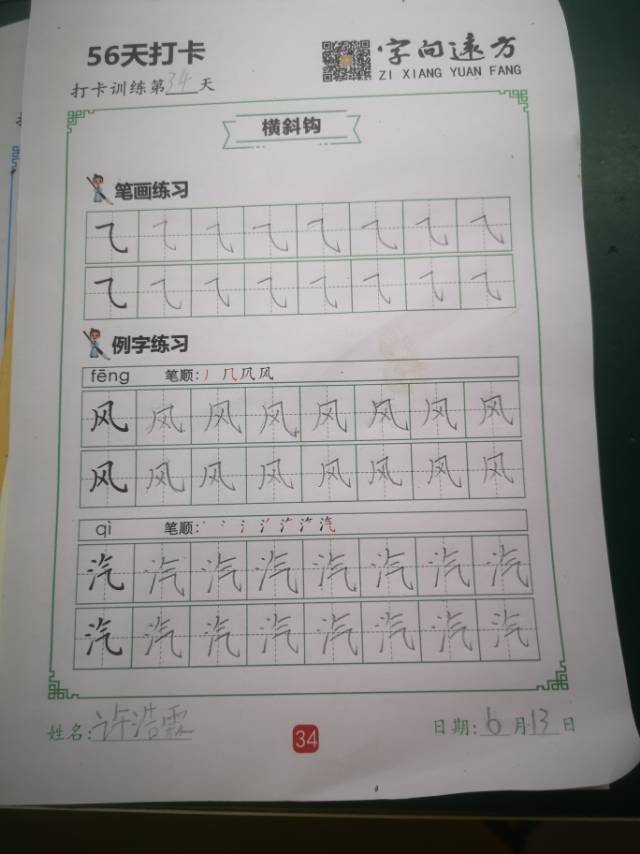 56天打卡
字向遠方
ZI XIANG YUAN FANG
打卡训练第34天
横斜钩
笔画练习
乁 乁 乁 乁 乁 乁 乁 乁
乁 乁 乁 乁 乁 乁 乁 乁
例字练习
fēng 笔顺: 丿 几 凤 风
风 风 风 风 风 风 风 风
风 风 风 风 风 风 风 风
qì 笔顺:
汽 汽 汽 汽 汽 汽 汽 汽
汽 汽 汽 汽 汽 汽 汽 汽
姓名: 许浩霖
34
日期: 6月13日